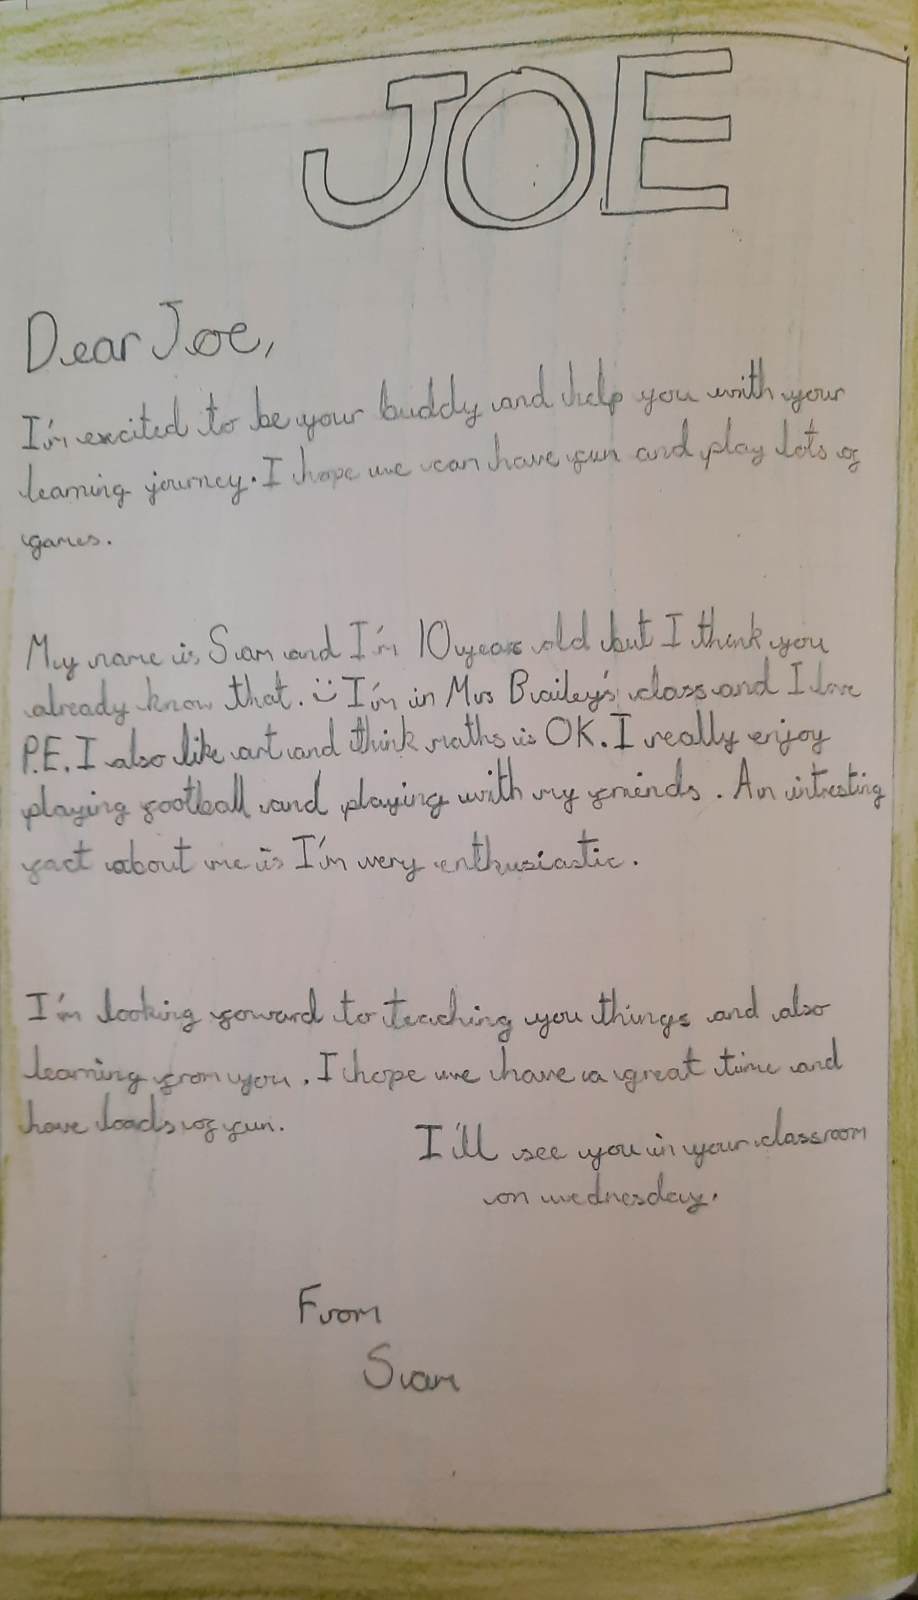 JOE
Dear Joe,
I'm excited to be your buddy and help you with your
learning journey. I hope we can have fun and play lots of
games.
My name is Sam and I'm 10 years old but I think you
already know that. :) I'm in Mrs Brailey's class and I love
P.E. I also like art and think maths is OK. I really enjoy
playing football and playing with my friends. An intresting
fact about me is I'm very enthusiastic.
I'm looking foward to teaching you things and also
learning from you. I hope we have a great time and
have loads of fun.
I'll see you in your classroom
on wednesday.
From
Sam